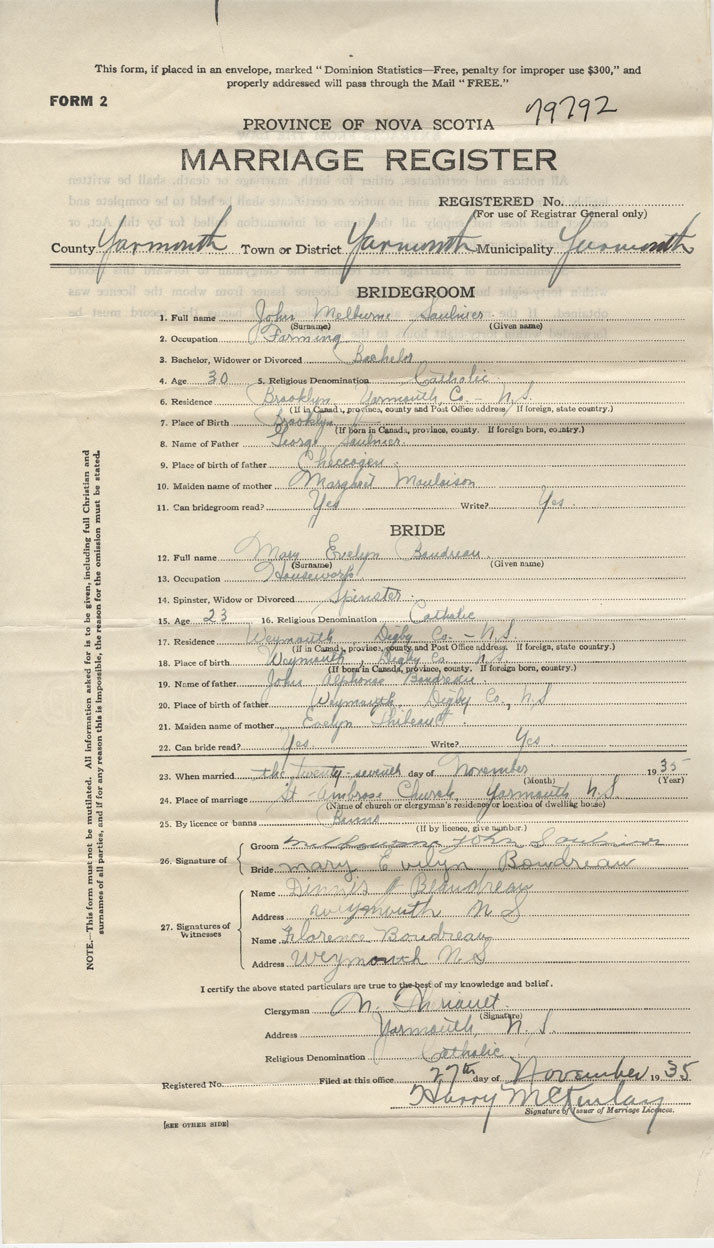 This form, if placed in an envelope, marked "Dominion Statistics—Free, penalty for improper use $300," and
properly addressed will pass through the Mail "FREE."
FORM 2
79792
PROVINCE OF NOVA SCOTIA
MARRIAGE REGISTER
REGISTERED No.
(For use of Registrar General only)
County Yarmouth Town or District Yarmouth Municipality Yarmouth
BRIDEGROOM
1. Full name John Melburne Saulnier
(Surname) (Given name)
2. Occupation Farming
3. Bachelor, Widower or Divorced Bachelor
4. Age 30 5. Religious Denomination Catholic
6. Residence Brooklyn Yarmouth Co - N.S.
(If in Canada, province, county and Post Office address. If foreign, state country.)
7. Place of Birth Brooklyn
(If born in Canada, province, county. If foreign born, country.)
8. Name of Father George Saulnier
9. Place of birth of father
10. Maiden name of mother Margaret Moulaison
11. Can bridegroom read? Yes Write? Yes
BRIDE
12. Full name Mary Evelyn Boudreau
(Surname) (Given name)
13. Occupation Housework
14. Spinster, Widow or Divorced Spinster
15. Age 23 16. Religious Denomination Catholic
17. Residence Weymouth, Digby Co - N.S.
(If in Canada, province, county and Post Office address. If foreign, state country.)
18. Place of birth Weymouth, Digby Co. N.S.
(If born in Canada, province, county. If foreign born, country.)
19. Name of father John Alphonse Boudreau
20. Place of birth of father Weymouth, Digby Co., N.S
21. Maiden name of mother Evelyn Thibeault
22. Can bride read? Yes Write? Yes
23. When married the twenty-seventh day of November 1935
(Month) (Year)
24. Place of marriage St Ambrose Church, Yarmouth N.S.
(Name of church or clergyman's residence or location of dwelling house)
25. By licence or banns Banns
(If by licence, give number.)
26. Signature of
Groom John Saulnier
Bride mary Evelyn Boudreau
27. Signatures of Witnesses
Name Dennis Beaudreau
Address Weymouth N S
Name Florence Boudreau
Address Weymouth N S
I certify the above stated particulars are true to the best of my knowledge and belief.
Clergyman
(Signature)
Address Yarmouth, N.S.
Religious Denomination Catholic
Registered No. Filed at this office 27th day of November 1935
Harry McKinlay
Signature of Issuer of Marriage Licences.
[SEE OTHER SIDE]
NOTE.—This form must not be mutilated. All information asked for is to be given, including full Christian and
surnames of all parties, and if for any reason this is impossible, the reason for the omission must be stated.